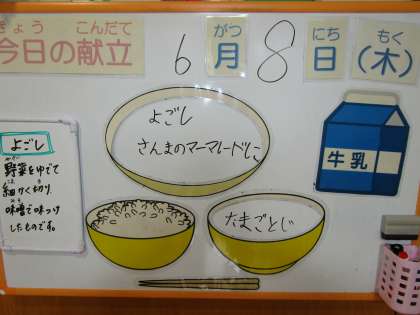 きょう こんだて
今日の献立
6
がつ
月
8
にち
日
もく
(木)
よごし
さんまのマーマレードに
牛乳
たまごとじ
よごし
野菜をゆでて
細かく切り
味噌で味つけ
したものです。